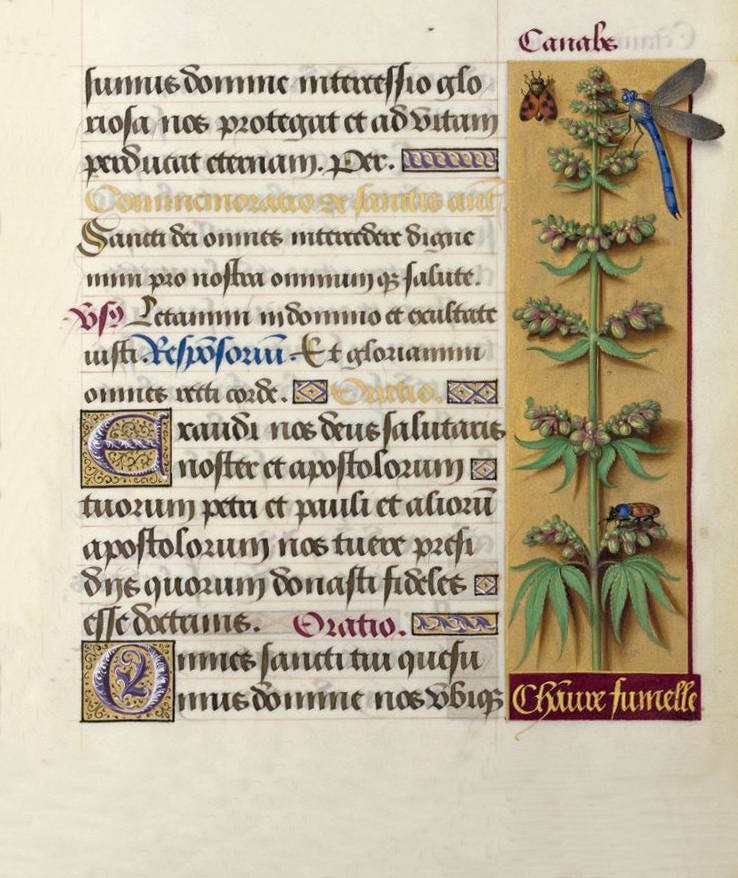 Canabe
sumus domine intercessio glo
riosa nos protegat et ad vitam
perducat eternam. Per.
Commemoratio de sanctis aut
Sancti dei omnes intercedere digne
mini pro nostra omnium q3 salute.
Letamini in domino et exultate
iusti. Responsorium. Et gloriamini
omnes recti corde. Oratio.
Exaudi nos deus salutaris
noster et apostolorum
tuorum petri et pauli et alioru̅
apostolorum nos tuere presi
diis quorum donasti fideles
esse doctrinis. Oratio.
Omnes sancti tui quesu
mus domine nos vbiq3
Cha̅ure fumelle